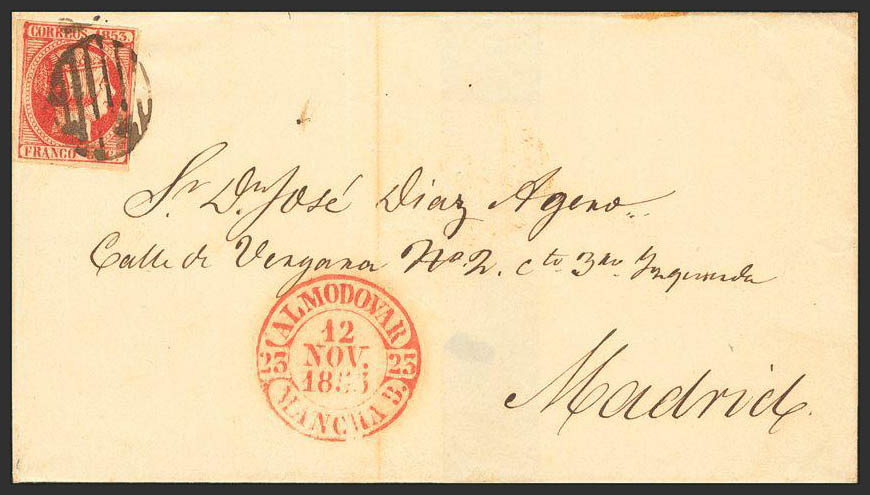 CORREOS 1853.
FRANCO
Sr. Dn José Diaz Agero
Calle de Vergara No. 2. cto 3ro Izquierda
ALMODOVAR
12
NOV.
1853
23 23
MANCHA B.
Madrid.